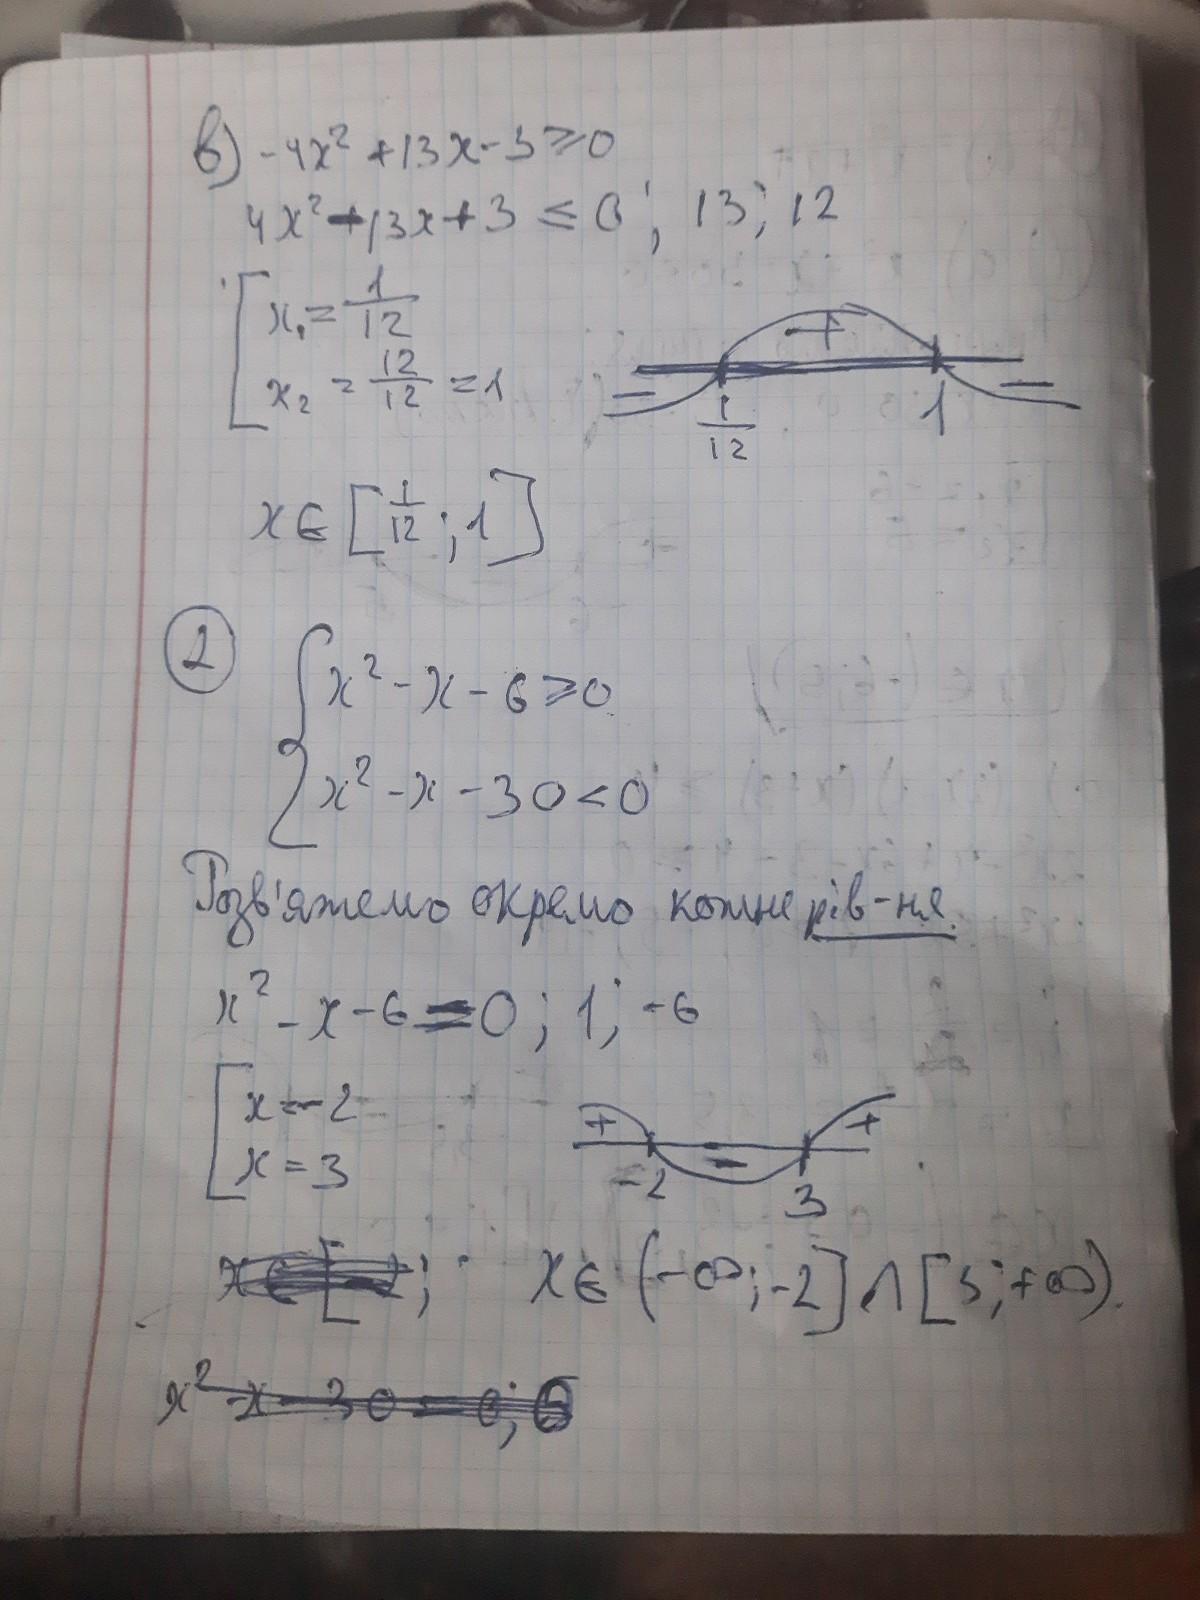 в) -4x² + 13x - 3 ≥ 0
4x² - 13x + 3 ≤ 0; 13; 12
[ x₁ = 1/12
x₂ = 12/12 = 1
- + -
1/12 1
x ∈ [1/12; 1]
2
{ x² - x - 6 ≥ 0
x² - x - 30 < 0
Розв'яжемо окремо кожне рів-ня.
x² - x - 6 = 0; 1; -6
[ x = -2
x = 3
+ - +
-2 3
x ∈ (-∞; -2] ∩ [3; +∞).
x² - x - 30 = 0; 6